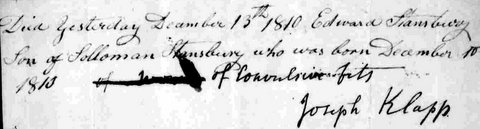 Died Yesterday December 13th 1810 Edward Stansbury
Son of Solloman Stansbury who was born December 10
1813 of Convulsive fits
Joseph Klapp.